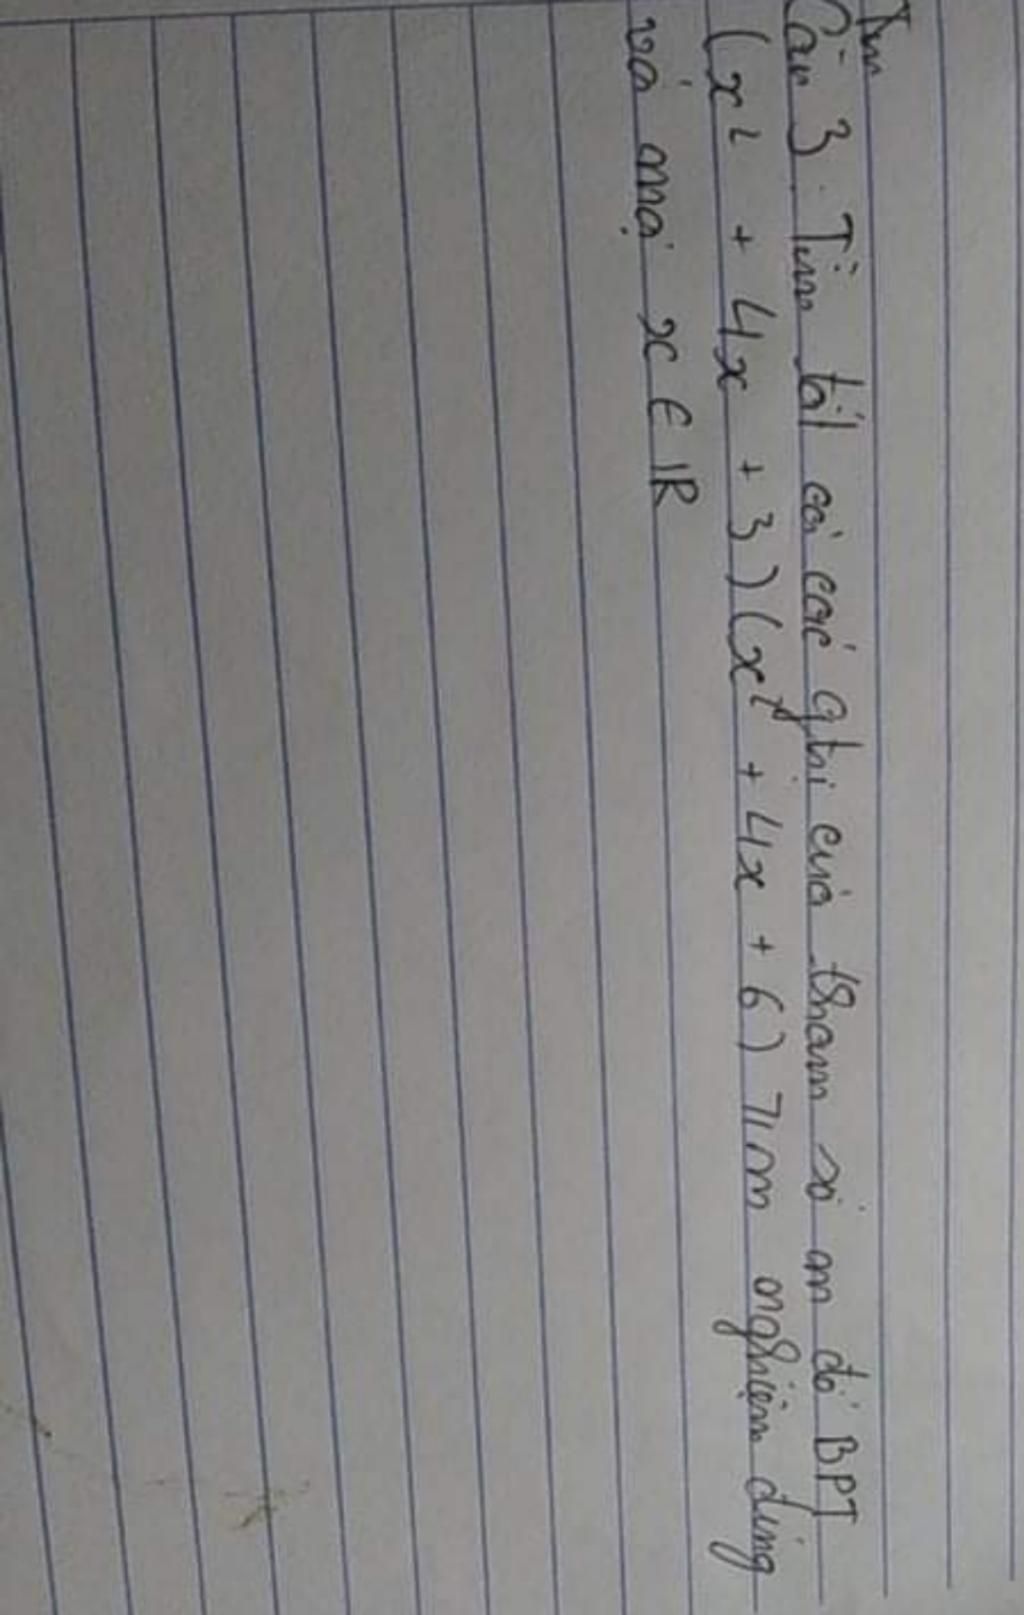 Câu 3: Tìm tất cả các gtri của tham số m để BPT
(x² + 4x + 3)(x² + 4x + 6) ≥ m nghiệm đúng
với mọi x ∈ R